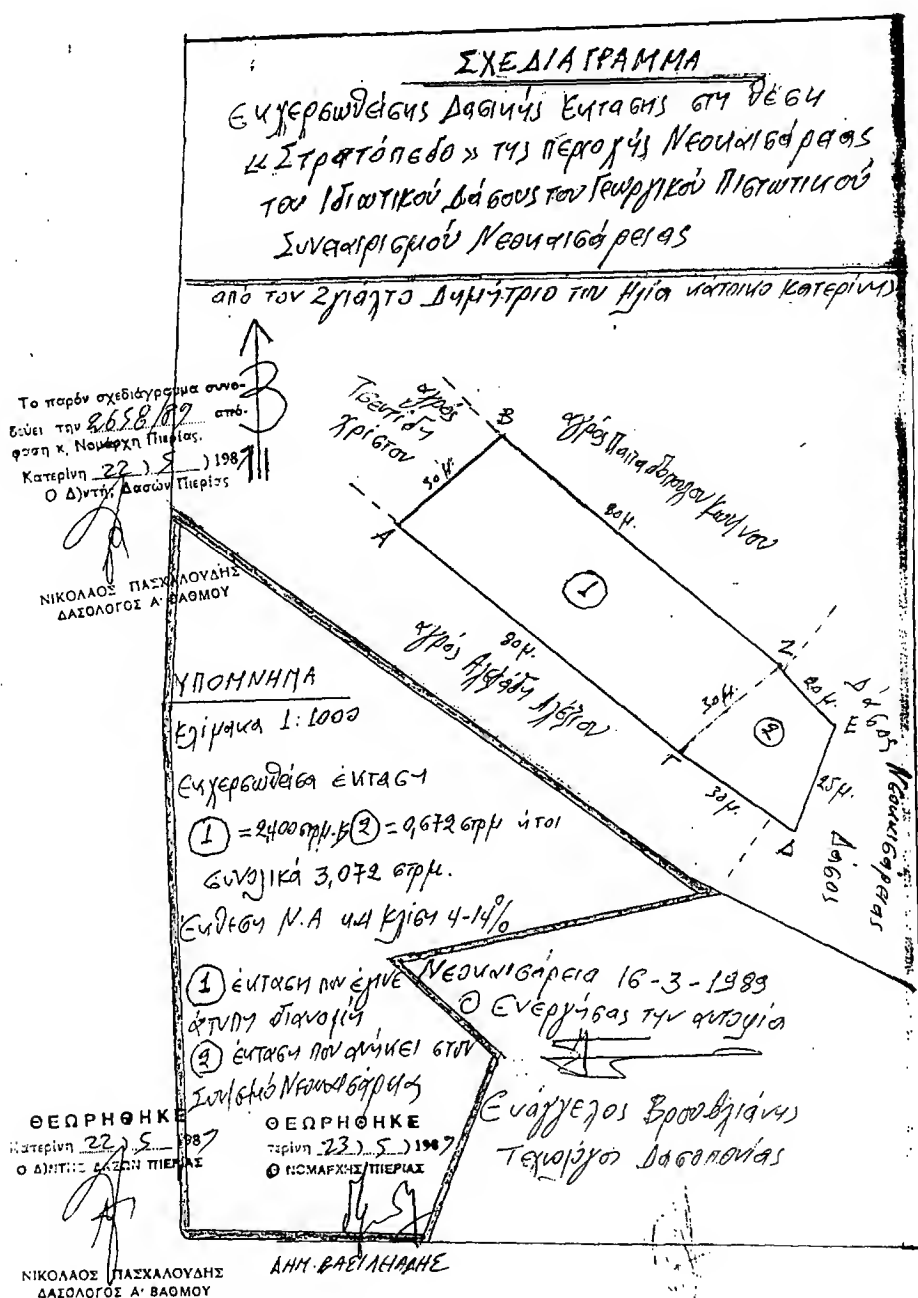 ΣΧΕΔΙΑΓΡΑΜΜΑ
Εκχερσωθείσης Δασικής Έκτασης στη θέση
«Στρατόπεδο» της περιοχής Νεοκαισάρειας
του Ιδιωτικού Δάσους του Γεωργικού Πιστωτικού
Συνεταιρισμού Νεοκαισάρειας
από τον Ζγιάλτο Δημήτριο του Ηλία κάτοικο Κατερίνης
Το παρόν σχεδιάγραμμα συνο-
δεύει την 2658/89 από-
φαση κ. Νομάρχη Πιερίας.
Κατερίνη 22) 5 ) 1989
Ο Δ)ντής Δασών Πιερίας
ΝΙΚΟΛΑΟΣ ΠΑΣΧΑΛΟΥΔΗΣ
ΔΑΣΟΛΟΓΟΣ Α' ΒΑΘΜΟΥ
Β
αγρός
Τσεντίδη
Χρίστου
Β
30μ.
Α
αγρός Παπαδοπούλου Κων/νου
80μ.
1
80μ.
αγρός Αλεξίου
Ζ
30μ.
20μ.
Ε
2
Γ
30μ.
25μ.
Δ
Δάσος
Δάσος
Νεοκαισάρειας
ΥΠΟΜΝΗΜΑ
Κλίμακα 1:1000
Εκχερσωθείσα έκταση
1 = 2,400 στρμ. & 2 = 0,672 στρμ ήτοι
συνολικά 3,072 στρμ.
Έκθεση Ν.Α και Κλίση 4-14%
1 έκταση που έγινε
άτυπη διανομή
2 έκταση που ανήκει στον
Συν/σμό Νεοκαισάρειας
Νεοκαισάρεια 16-3-1989
Ο Ενεργήσας την αυτοψία
Ευάγγελος Βρουβλιάνης
Τεχνολόγος Δασοπονίας
ΘΕΩΡΗΘΗΚΕ
Κατερίνη 22) 5 1989
Ο Δ)ΝΤΗΣ ΔΑΣΩΝ ΠΙΕΡΙΑΣ
ΝΙΚΟΛΑΟΣ ΠΑΣΧΑΛΟΥΔΗΣ
ΔΑΣΟΛΟΓΟΣ Α' ΒΑΘΜΟΥ
ΘΕΩΡΗΘΗΚΕ
τερίνη 23) 5 ) 1989
Ο ΝΟΜΑΡΧΗΣ ΠΙΕΡΙΑΣ
ΔΗΜ. ΒΑΣΙΛΕΙΑΔΗΣ